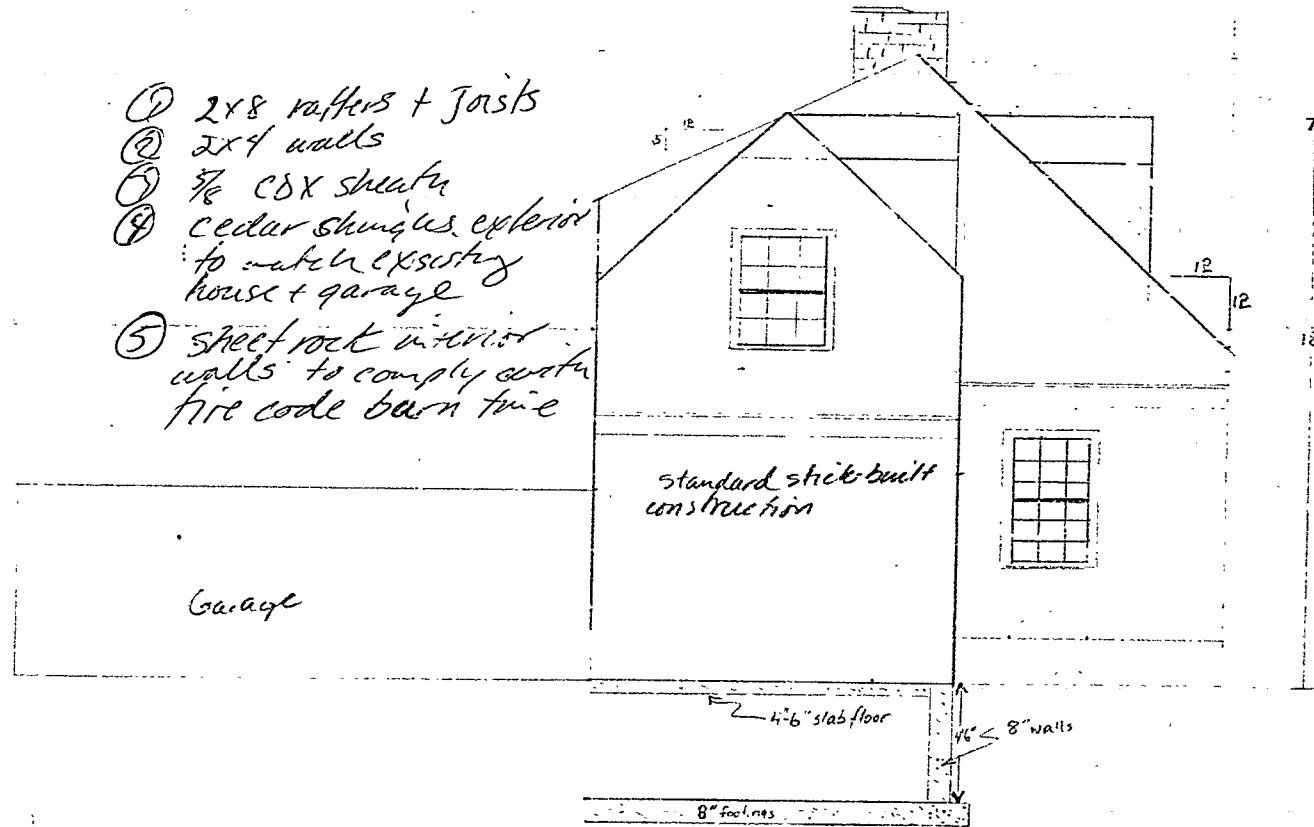 ① 2x8 rafters + Joists
② 2x4 walls
③ 5/8 CDX sheath
④ cedar shingles exterior
to match exsisting
house + garage
⑤ sheet rock interior
walls to comply with
fire code burn time
5
12
7
12
12
standard stick-built
construction
Garage
4"-6" slab floor
8" walls
8" footings